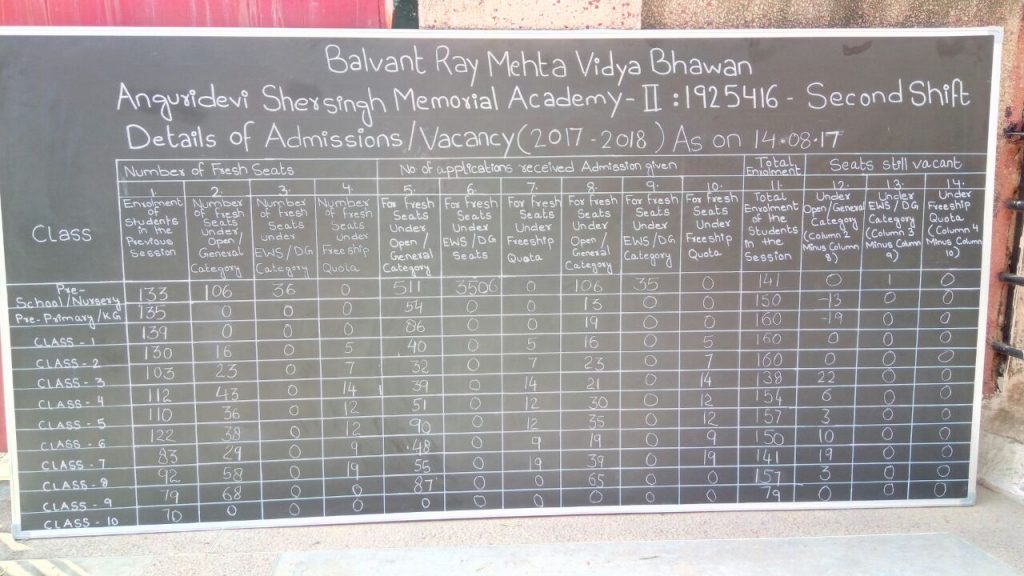 Balvant Ray Mehta Vidya Bhawan
Anguridevi Shersingh Memorial Academy - II : 1925416 - Second Shift
Details of Admissions/Vacancy (2017-2018) As on 14.08.17
Class Number of Fresh Seats No of applications received Admission given Total Enrolment Seats still vacant
1. 2. 3. 4. 5. 6. 7. 8. 9. 10. 11. 12. 13. 14.
Enrolment of Students in the Previous Session
Number of Fresh Seats Under Open / General Category
Number of Fresh Seats Under EWS/DG Category
Number of Fresh Seats Under Freeship Quota
For Fresh Seats Under Open / General Category
For Fresh Seats Under EWS/DG Seats
For Fresh Seats Under Freeship Quota
For Fresh Seats Under Open / General Category
For Fresh Seats Under EWS/DG Category
For Fresh Seats Under Freeship Quota
Total Enrolment of the Students in the Session
Under Open/General Category (Column 2 Minus Column 8)
Under EWS/DG Category (Column 3 Minus Column 9)
Under Freeship Quota (Column 4 Minus Column 10)
Pre-School/Nursery 133 106 36 0 511 3506 0 106 35 0 141 0 1 0
Pre-Primary/KG 135 0 0 0 54 0 0 13 0 0 150 -13 0 0
CLASS - 1 139 0 0 0 86 0 0 19 0 0 160 -19 0 0
CLASS - 2 130 16 0 5 40 0 5 16 0 5 160 0 0 0
CLASS - 3 103 23 0 7 32 0 7 23 0 7 160 0 0 0
CLASS - 4 112 43 0 14 39 0 14 21 0 14 138 22 0 0
CLASS - 5 110 36 0 12 51 0 12 30 0 12 154 6 0 0
CLASS - 6 122 38 0 12 90 0 12 35 0 12 157 3 0 0
CLASS - 7 83 29 0 9 48 0 9 19 0 9 150 10 0 0
CLASS - 8 92 58 0 19 55 0 19 39 0 19 141 19 0 0
CLASS - 9 79 68 0 0 87 0 0 65 0 0 157 3 0 0
CLASS - 10 70 0 0 0 0 0 0 0 0 0 79 0 0 0